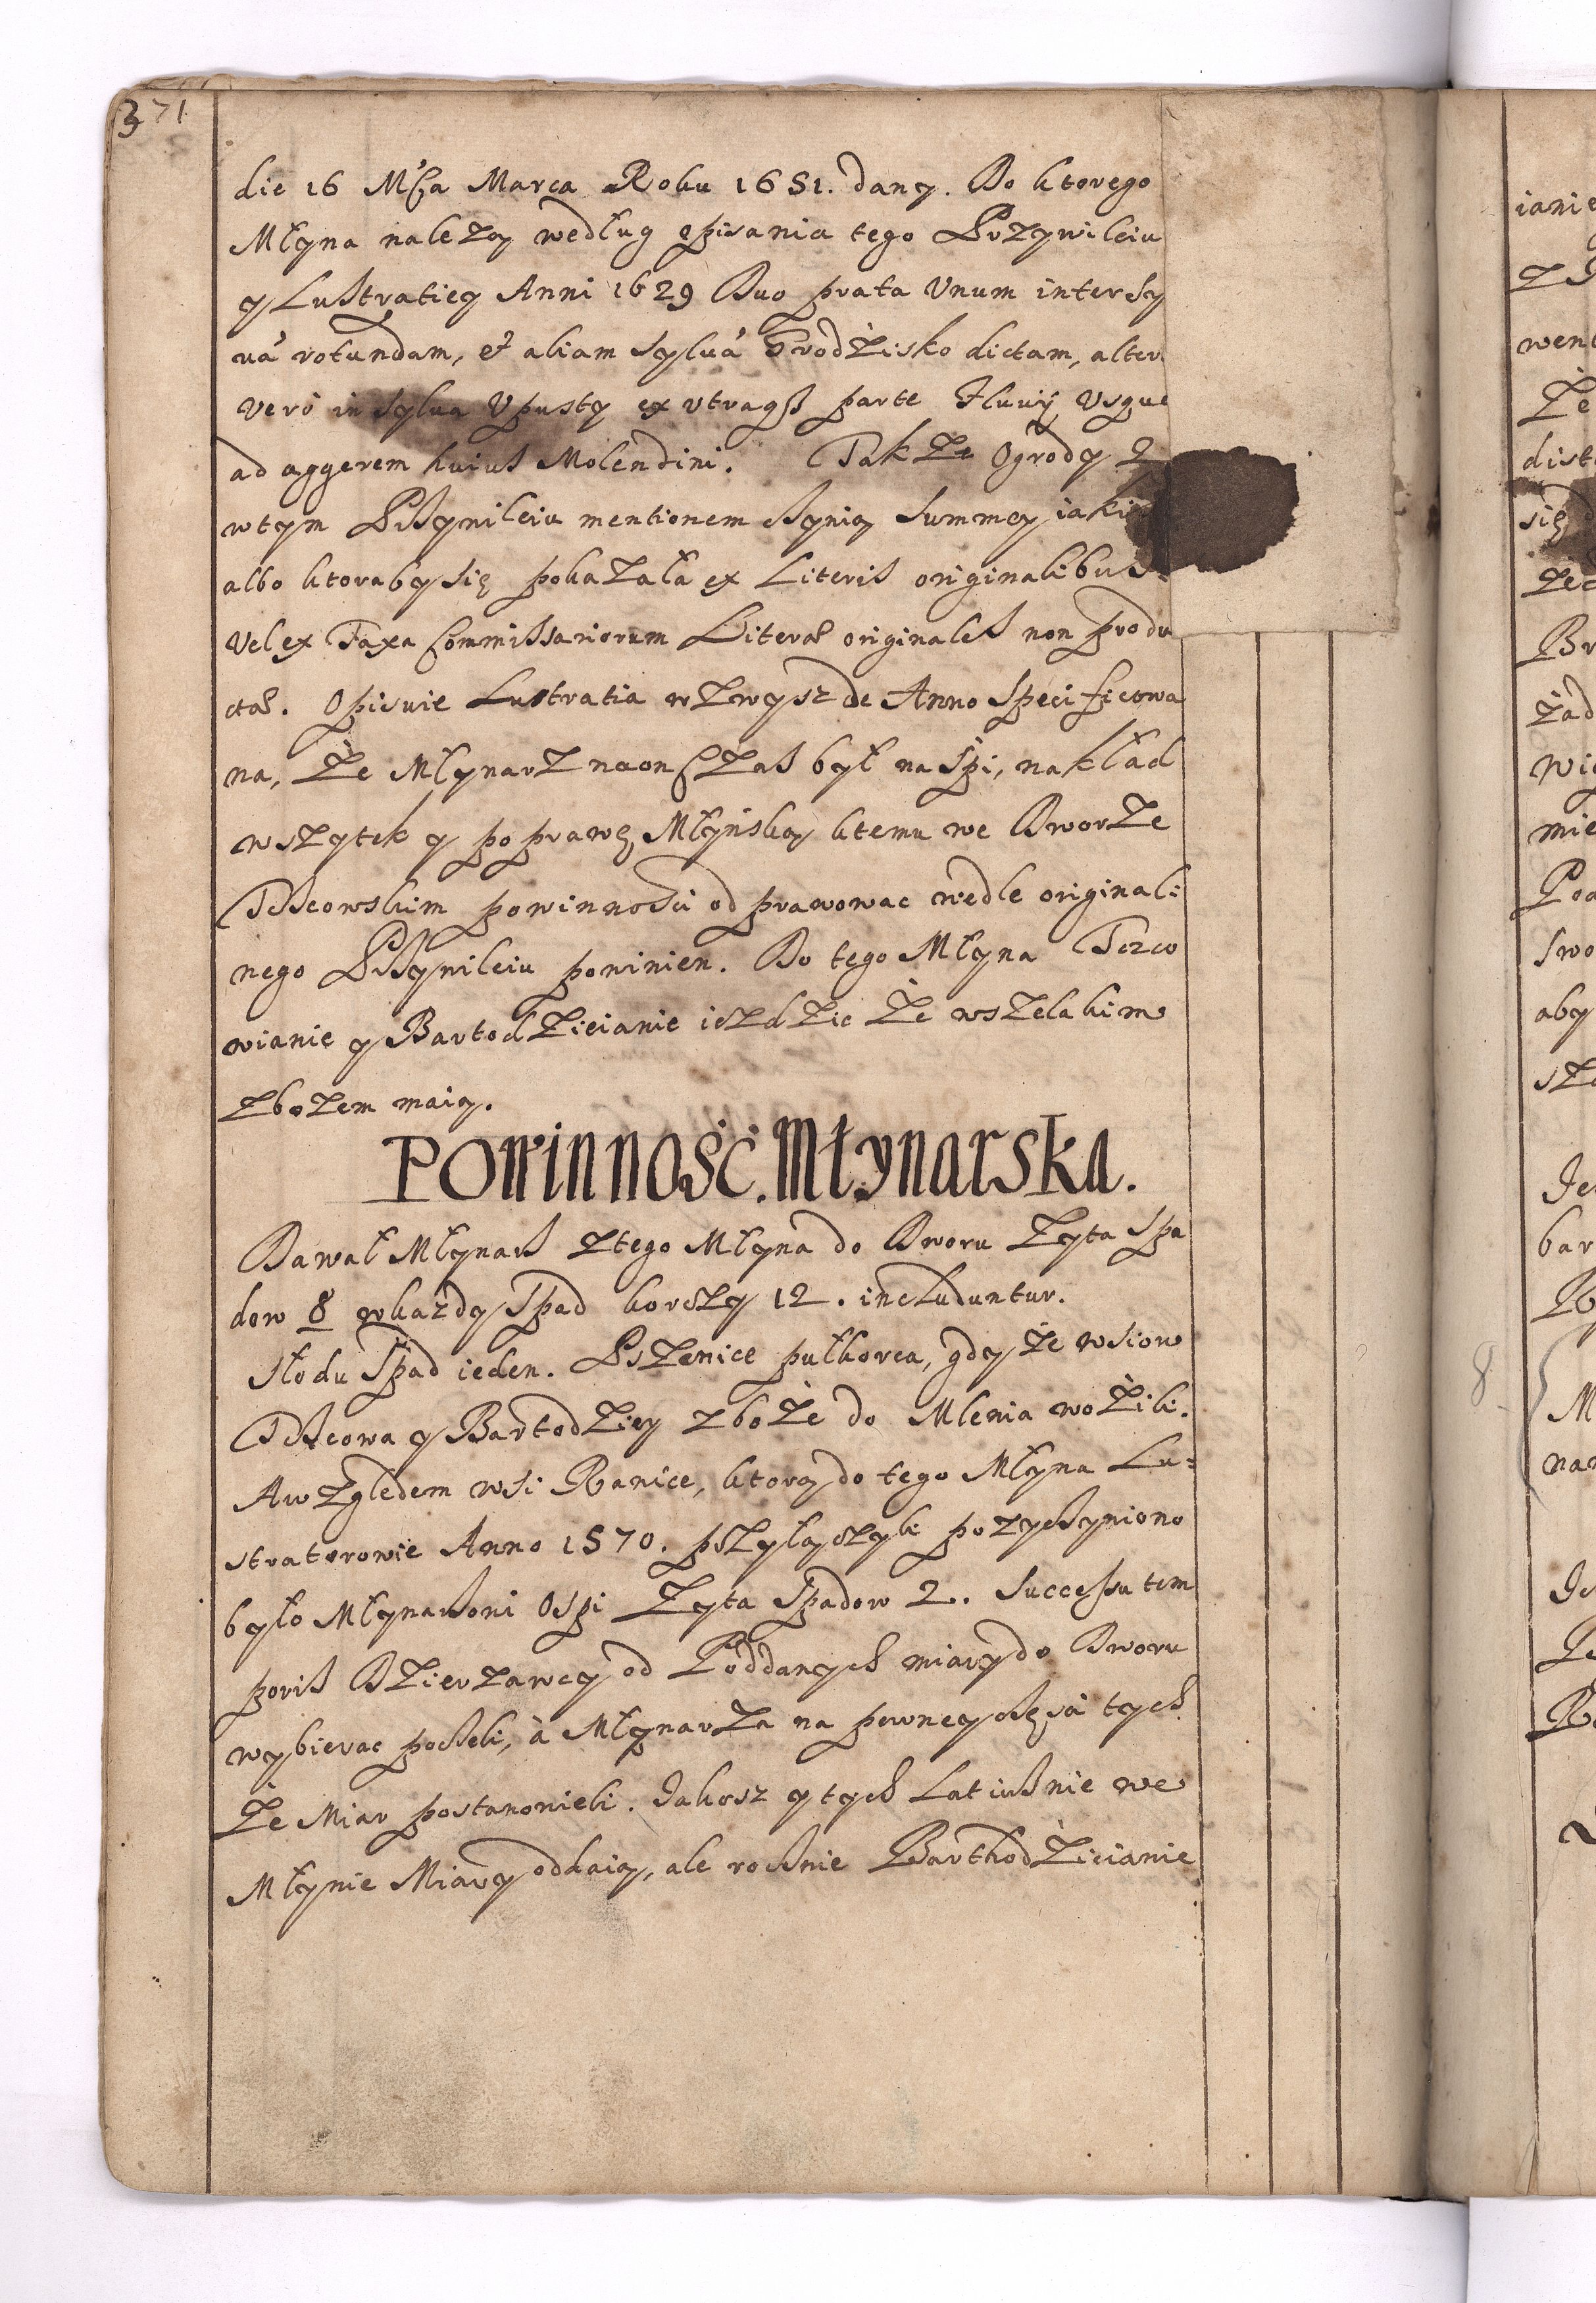 371
die 16 Mca Marca Roku 1651. dany. Do ktorego
Młyna należą według opisania tego Przywileiu
y Lustratiey Anni 1629 Duo prata Unum inter sy
uá rotundam, et aliam syluá Grodżisko dictam, alter
vero in sylva Vpusty ex vtraqз parte Fluvij Usque
ad aggerem huius Molendini. Takze Ogrody 2
wtym Przywileiu mentionem czynią Summey iaki
albo ktoraby się pokazała ex Literis originalibus
Vel ex Taxa Commissariorum Literas originales non produ
ctas. Opisuie Lustratia wzwysz de Anno specificowa
na, Że Młynarz naonczas był na spi, nakład
wszytek y poprawę Młyńską ktemu we Dworze
Tczcowskim powinności odprawowac wedle originali
nego Przywileiu powinien. Do tego Młyna Tczco
wianie y Bartodzieianie iezdzic że wszelakim
zbozem maią.
Powinność Młynarska.
Dawał Młynarz ztego Młyna do Dworu Zyta spa
dow 8 wkazdy Spad korczy 12. includuntur.
Słodu Spad ieden. Pszenice pułkorca, gdyże wsiow
Tczcowa y Bartodziey zboże do Mlenia wożili.
Awzględem wsi Ranice, ktorą do tego Młyna Lu=
stratorowie Anno 1570. przyłączyli pozyczyniono
było Młynarzowi Ospi Zyta Spadow 2. Successu tem
poris Dzierzawcy od Poddanych miary do Dworu
wybierac poczeli, à Młynarza na pewney części tych
że Miar postanowieli. Jakosz y tych Lat iusz nie we
Młynie Miary oddaią, ale rocznie Barthodzieianie
8